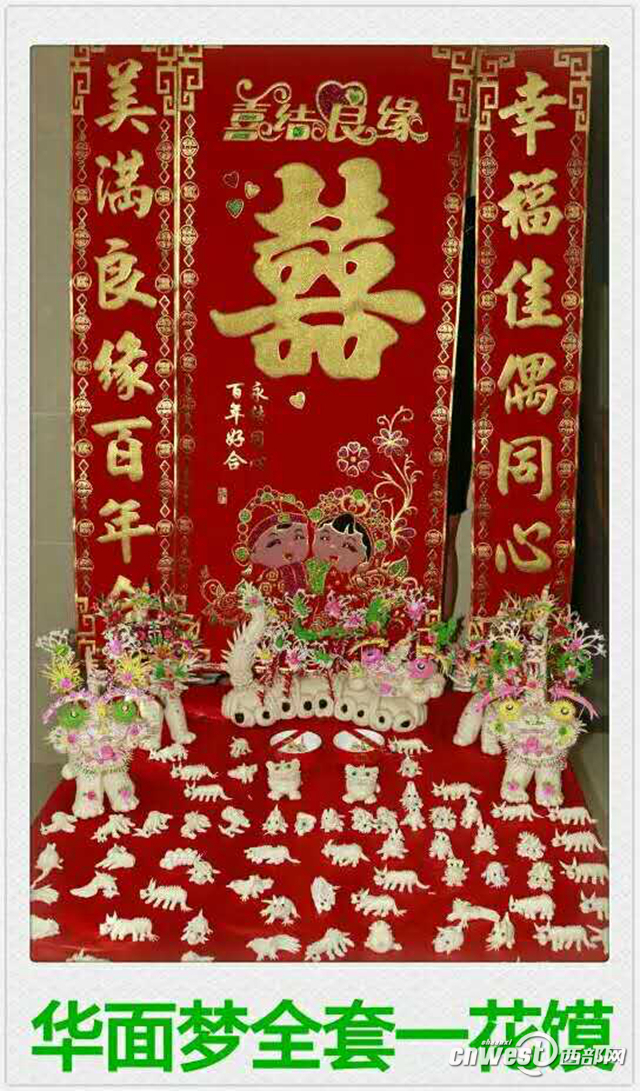 喜结良缘
囍
幸福佳偶同心
美满良缘百年
永结同心
百年好合
华面梦全套一花馍
shaanxi
cnwest@西部网